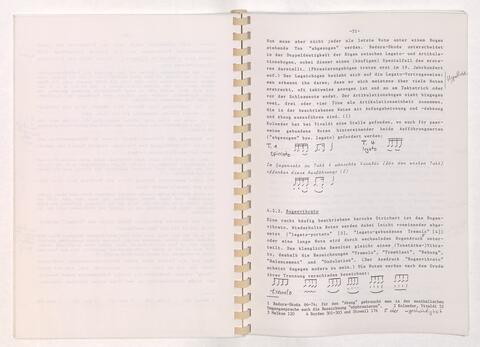 -71-
Nun muss aber nicht jeder als letzte Note unter einem Bogen
stehende Ton "abgezogen" werden. Badura-Skoda unterscheidet
in der Doppeldeutigkeit der Bogen zwischen Legato- und Artikula-
tionsbogen, wobei dieser einen (häufigen) Spezialfall des ersten
darstellt. (Phrasierungsbögen treten erst im 19. Jahrhundert
auf.) Der Legatobogen bezieht sich auf die Legato-Vortragsweise;
man erkennt ihn daran, dass er sich meistens über viele Noten
erstreckt, oft taktweise gezogen ist und an Taktstrich oder
vor der Schlussnote endet. Der Artikulationsbogen zieht hingegen
zwei, drei oder vier Töne als Artikulationseinheit zusammen.
Die in der beschriebenen Weise mit Anfangsbetonung und -dehnung
und Abzug auszuführen sind. (1)
Kolneder hat bei Vivaldi eine Stelle gefunden, wo auch für paar-
weise gebundene Noten hintereinander beide Aufführungsarten
("abgezogen" bzw. legato) gefordert werden:
T. 1
T. 4
legato
A.2.2. Bogenvibrato
Eine recht häufig beschriebene barocke Strichart ist das Bogen-
vibrato. Wiederholte Noten werden dabei leicht voneinander abge-
setzt ("legato-portato" [3], "legato-gebundenes Tremolo" [4])
oder eine lange Note wird durch wechselnden Bogendruck unter-
teilt. Das klangliche Resultat gleicht einem (Tonstärke-)Vibra-
to, deshalb die Bezeichnungen "Tremolo", "Tremblast", "Bebung",
"Balancement" und "Ondulation". (Der Ausdruck "Bogenvibrato"
scheint dagegen modern zu sein.) Die Noten werden nach dem Grade
ihrer Trennung verschieden bezeichnet:
1 Badura-Skoda 66-74; für den "Abzug" gebraucht man in der musikalischen
Umgangssprache auch die Bezeichnung "abphrasieren". 2 Kolneder, Vivaldi 52
3 Melkus 120 4 Boyden 301-303 und Stowell 174